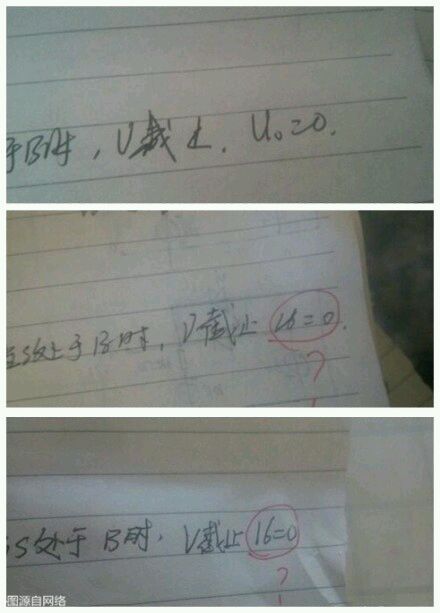 于B时，V截止．U₀=0．
当S处于B时，V截止 16=0．
?
当S处于B时，V截止 16=0
?
图源自网络